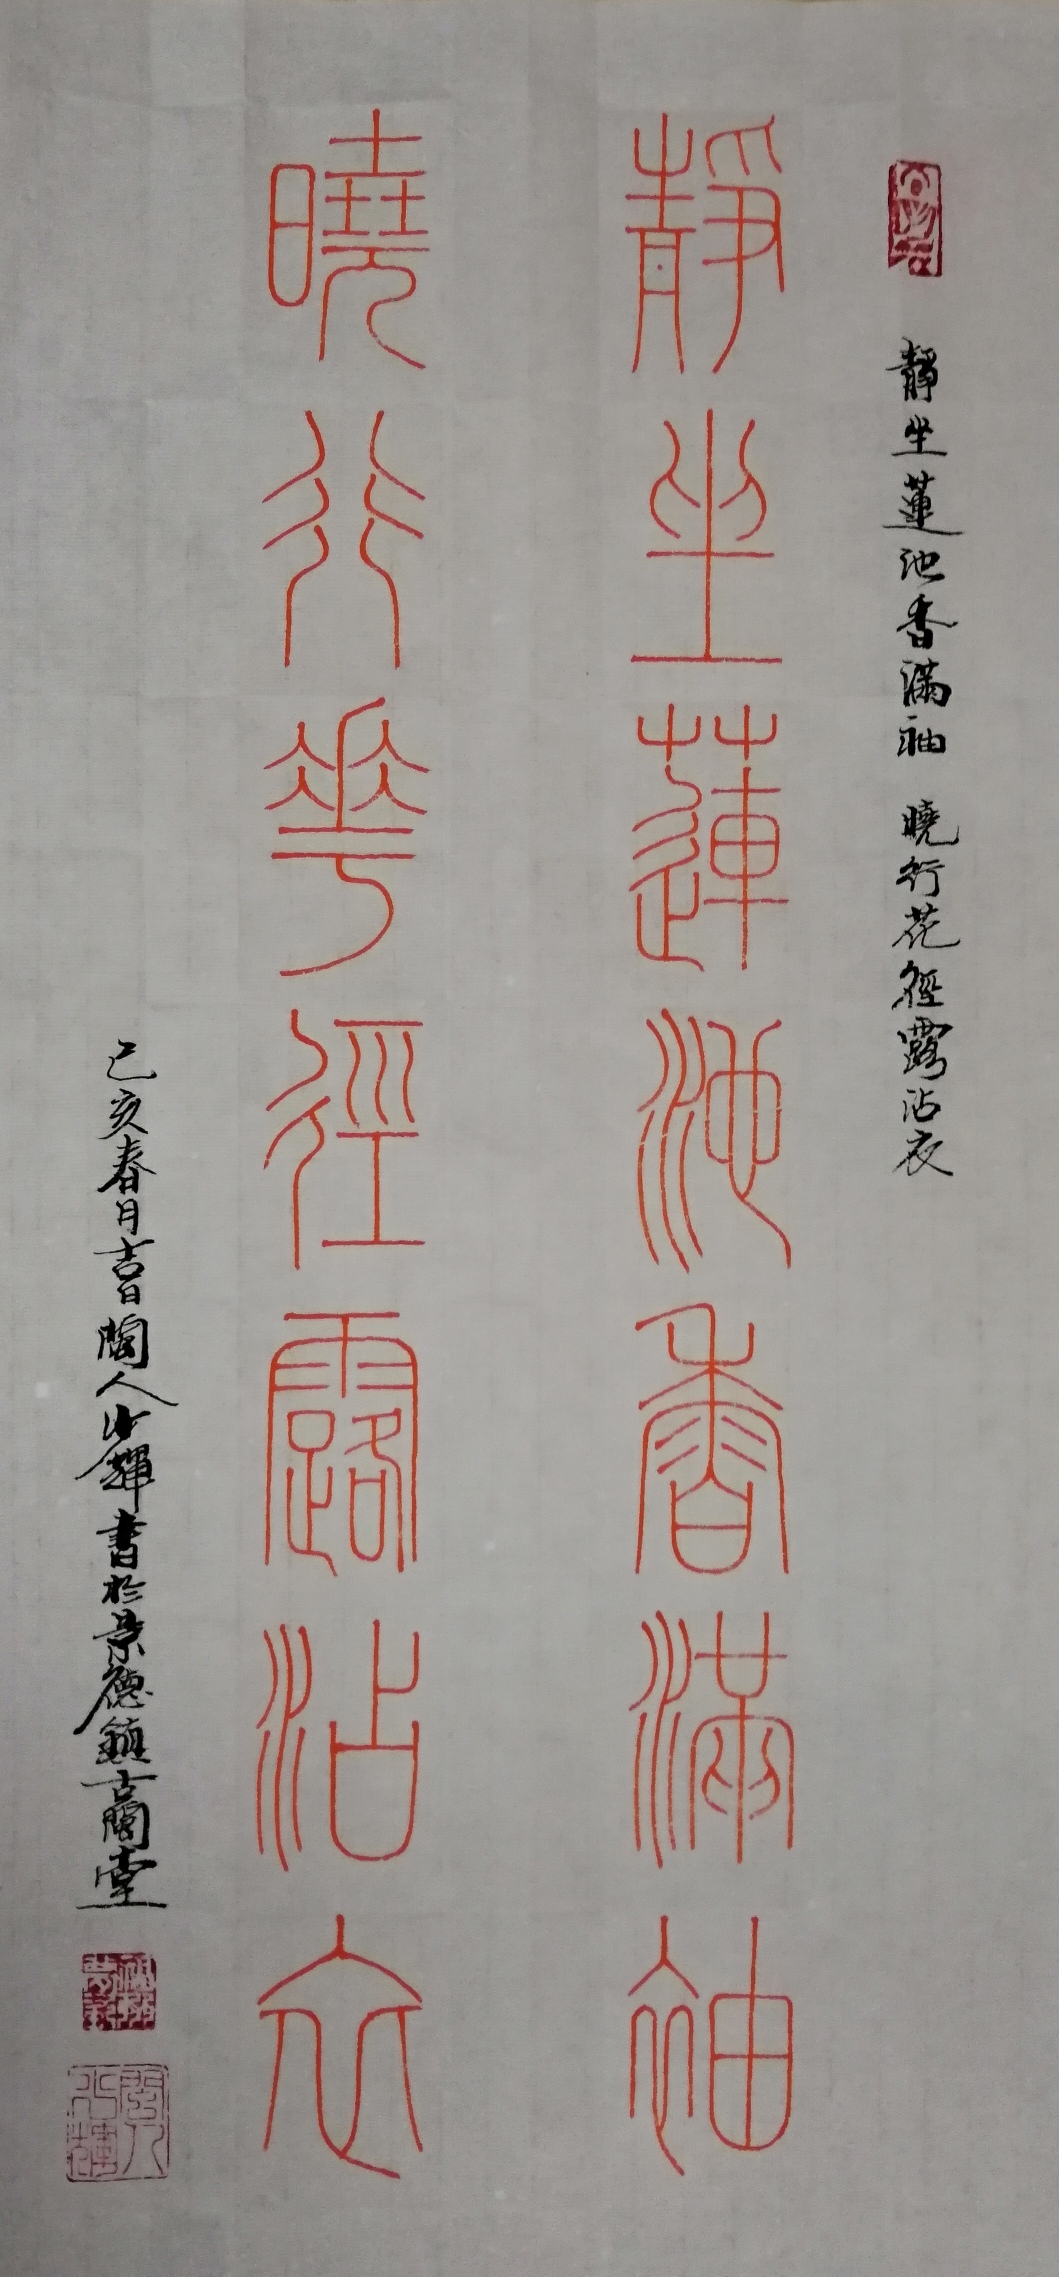 靜坐蓮池香滿袖 曉行花徑露沾衣
靜坐蓮池香滿袖
曉行華徑露沾衣
己亥春月吉日陶人少輝書於景德鎮古陶堂